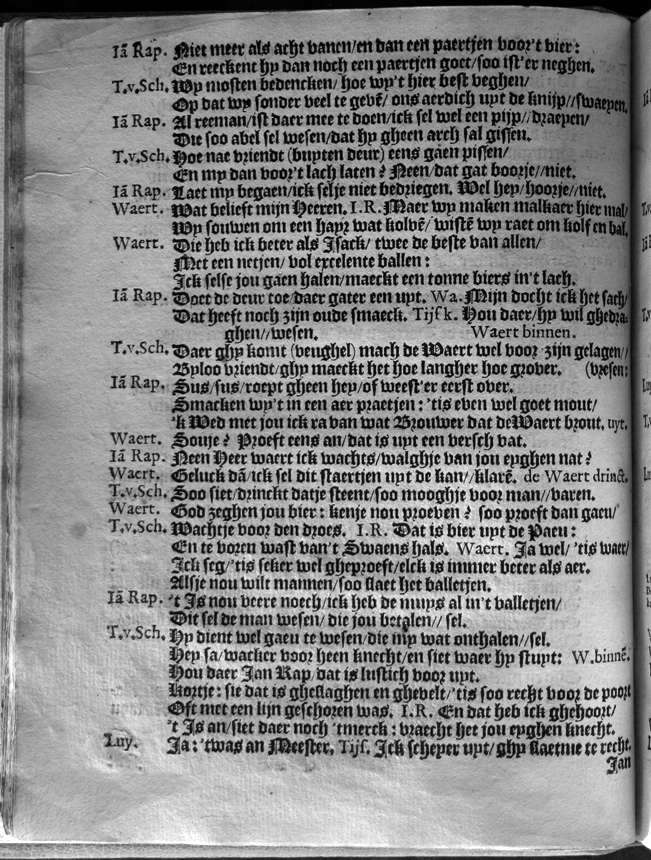 Iã Rap. Niet meer als acht vanen/en dan een paertjen voor't bier:
En reeckent hy dan noch een paertjen goet/soo ist'er neghen.
T.v.Sch. Wy mosten bedencken/ hoe wy't hier best veghen/
Op dat wy sonder veel te gevẽ/ ons aerdich uyt de knijp//swaepen.
Iã Rap. Al reeman/ist daer mee te doen/ick sel wel een pijp//draeyen/
Die soo abel sel wesen/dat hy gheen arch sal gissen.
T.v.Sch. Hoe nae vriendt (buyten deur) eens gaen pissen/
En my dan voor't lach laten? Neen/dat gat boorje//niet.
Iã Rap. Laet my begaen/ick selje niet bedriegen. Wel hey/hoorje//niet.
Waert. Wat belieft mijn Heeren. I.R. Maer wy maken malkaer hier mal/
Wy souwen om een hayr wat kolvẽ/ wistẽ wy raet om kolf en bal.
Waert. Die heb ick beter als Isack/ twee de beste van allen/
Met een netjen/ vol excelente ballen:
Ick selse jou gaen halen/maeckt een tonne biers in't lach.
Iã Rap. Doet de deur toe/daer gater een uyt. Wa. Mijn docht ick het sach/
Dat heeft noch zijn oude smaeck. Tijsk. Hou daer/hy wil ghedra-
ghen//wesen. Waert binnen.
T.v.Sch. Daer ghy komt (veughel) mach de Waert wel voor zijn gelagen//
Byloo vriendt/ghy maeckt het hoe langher hoe grover. (vresen:
Iã Rap. Sus/sus/roept gheen hey/of weest'er eerst over.
Smacken wy't in een aer praetjen: 'tis even wel goet mout/
'k Wed met jou ick ra van wat Brouwer dat de Waert brout, uyt.
Waert. Souje? Proeft eens an/dat is uyt een versch vat.
Iã Rap. Neen Heer waert ick wachts/walghje van jou eyghen nat?
Waert. Geluck dã/ick sel dit staertjen uyt de kan//klarẽ. de Waert drinct.
T.v.Sch. Soo siet/drinckt datje steent/soo mooghje voor man//varen.
Waert. God zeghen jou bier: kenje nou proeven? soo proeft dan gaeu/
T.v.Sch. Wachtje voor den droes. I.R. Dat is bier uyt de Paeu:
En te voren wast van't Swaens hals. Waert. Ja wel/ 'tis waer/
Ick seg/'tis seker wel gheproeft/elck is immer beter als aer.
Alsje nou wilt mannen/soo slaet het balletjen.
Iã Rap. 't Is nou veere noech/ick heb de muys al in't valletjen/
Dit sel de man wesen/ die jou betalen// sel.
T.v.Sch. Hy dient wel gaeu te wesen/die my wat onthalen//sel.
Hey sa/wacker voor heen knecht/en siet waer hy stuyt: W.binnẽ.
Hou daer Jan Rap/dat is lustich voor uyt.
Kortje: sie dat is gheslaghen en ghevelt/'tis soo recht voor de poort
Oft met een lijn geschoren was. I.R. En dat heb ick ghehoort/
't Is an/siet daer noch 'tmerck: vraecht het jou eyghen knecht.
Luy. Ja: 'twas an Meester. Tijs. Ick scheyer uyt/ghy slaetnie te recht.
Jan